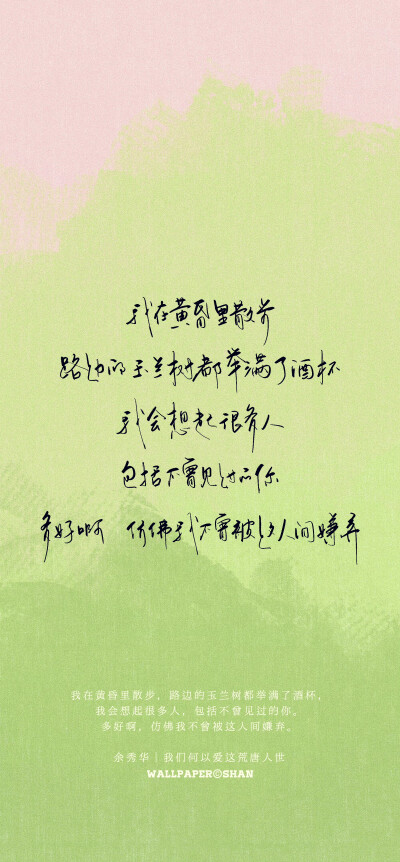 我在黄昏里散步
路边的玉兰树都举满了酒杯
我会想起很多人
包括不曾见过的你
多好啊 仿佛我不曾被这人间嫌弃
我在黄昏里散步，路边的玉兰树都举满了酒杯，
我会想起很多人，包括不曾见过的你。
多好啊，仿佛我不曾被这人间嫌弃。
余秀华｜我们何以爱这荒唐人世
WALLPAPER©SHAN